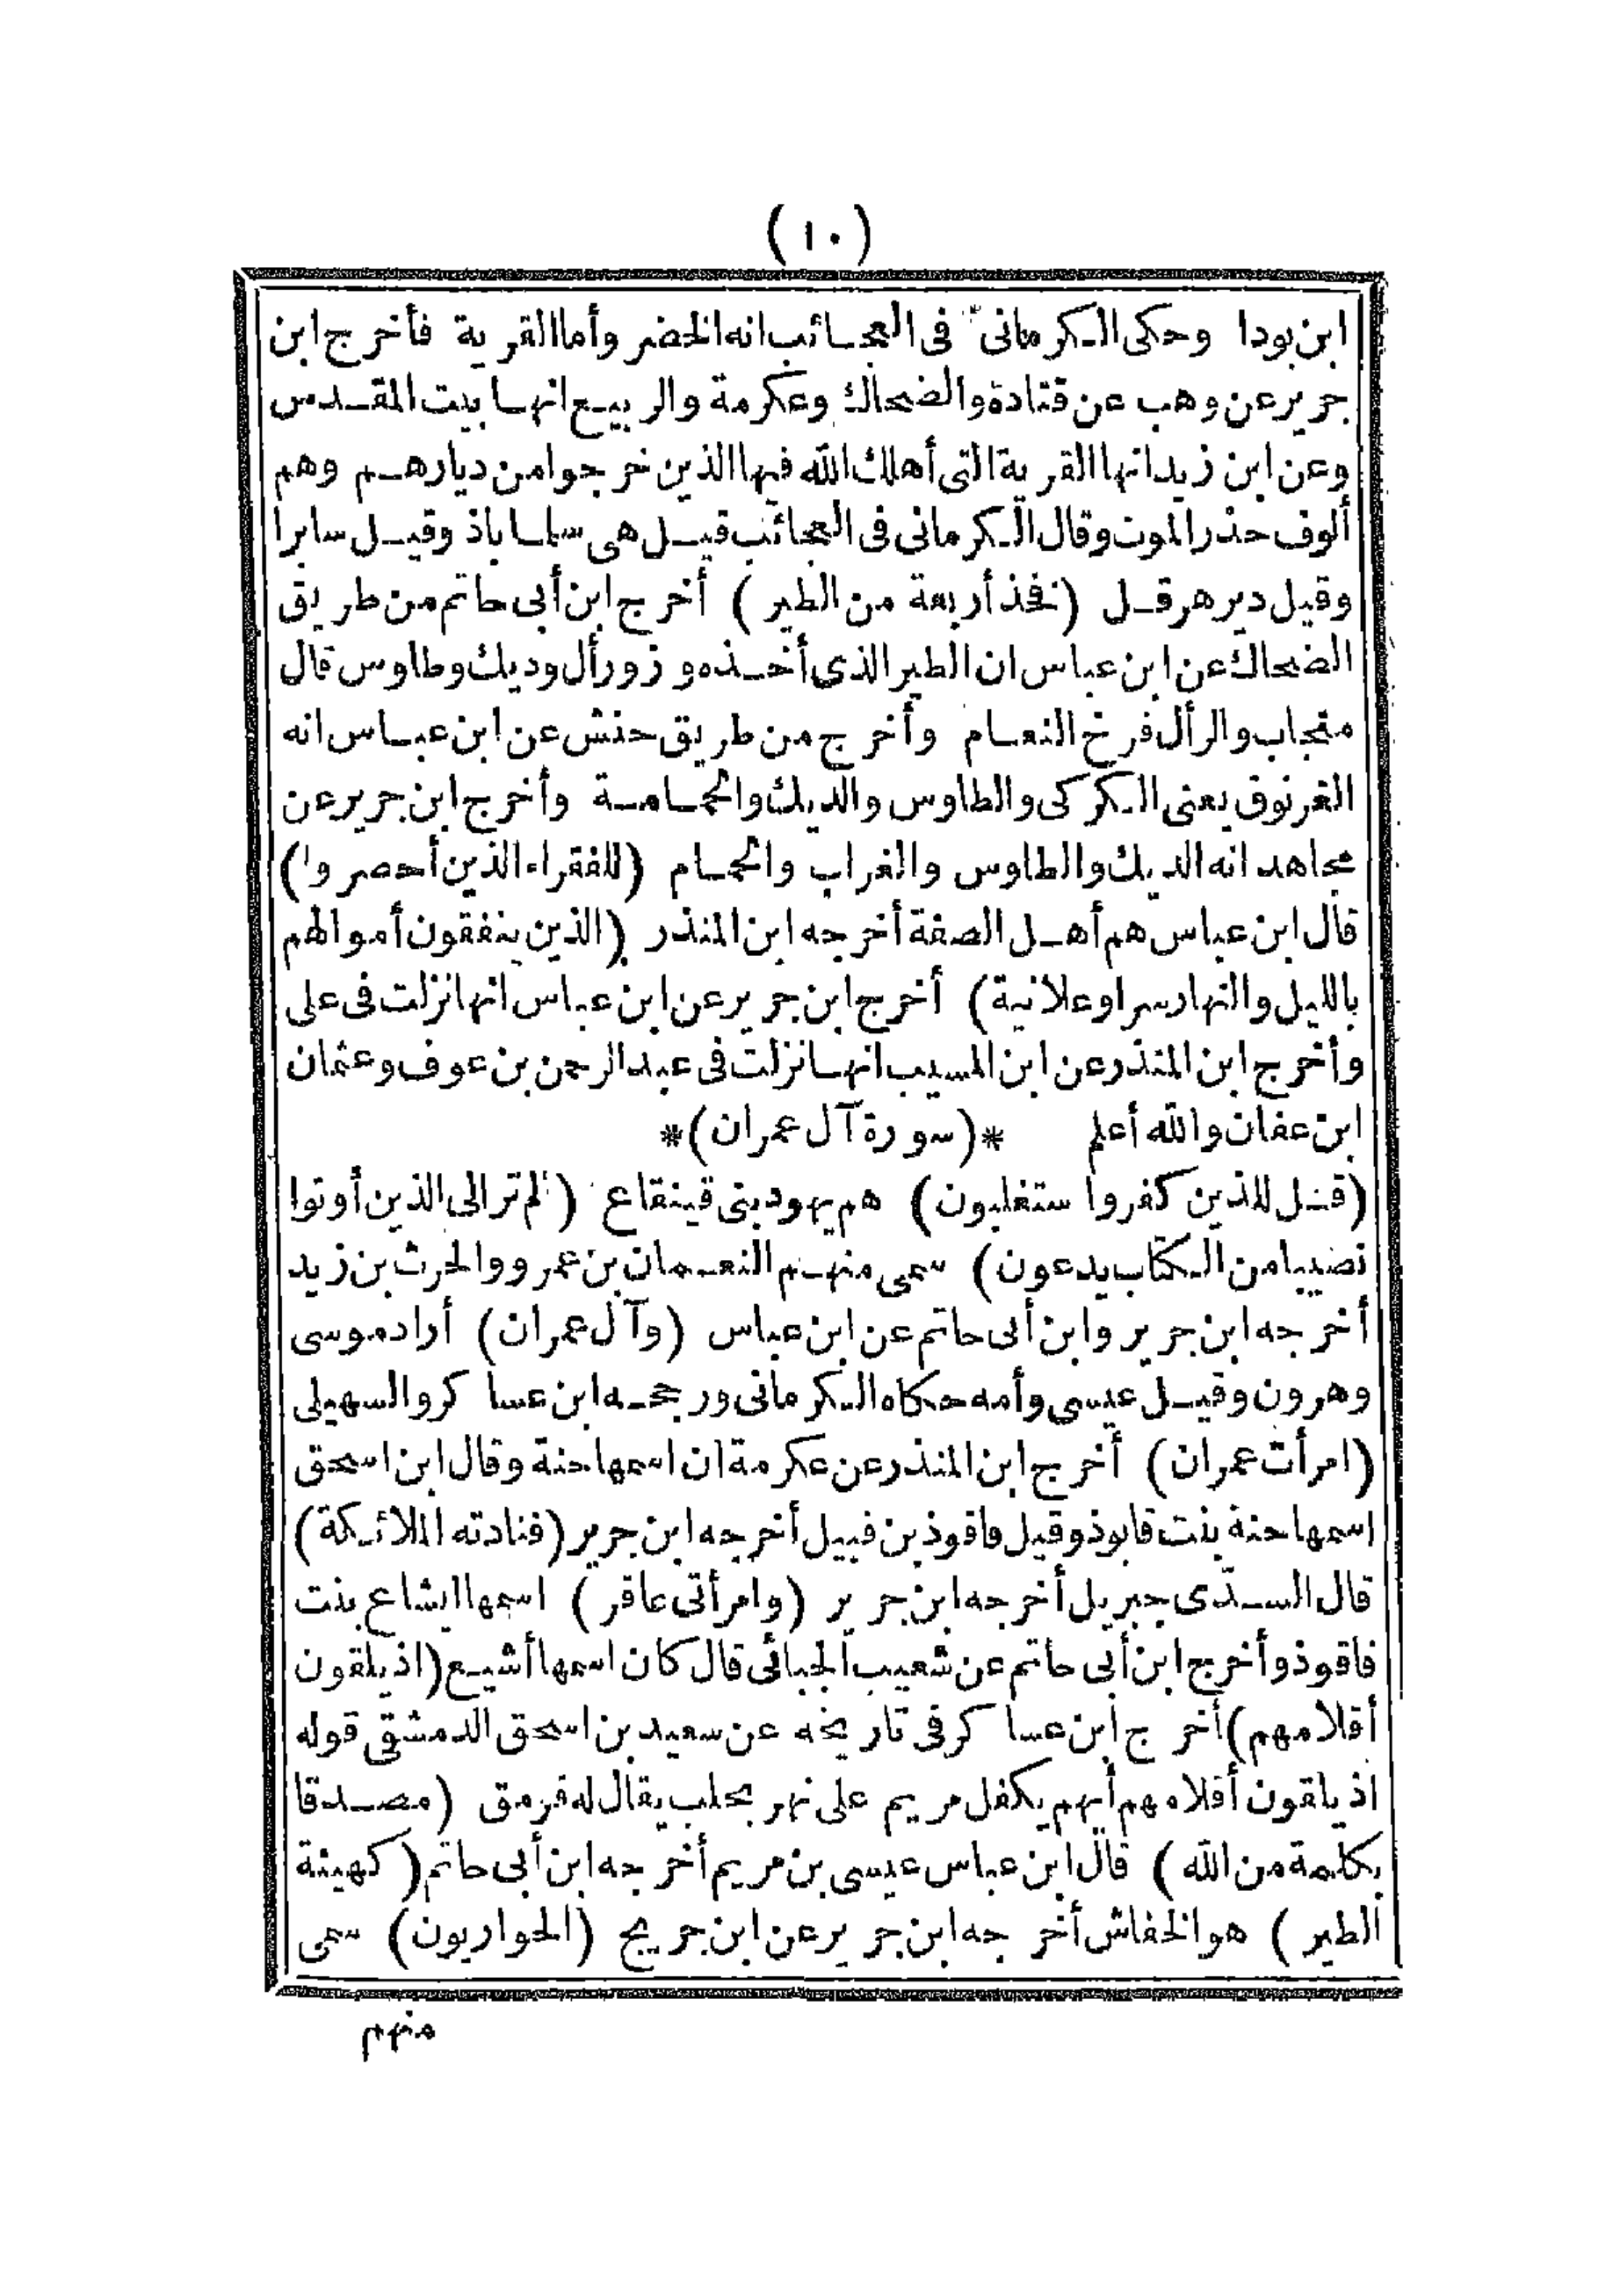 (١٠)
ابن بودا وحكى الكرمانى فى العجائب انه الخضر وأما القرية فأخرج ابن
جرير عن وهب عن قتادة والضحاك وعكرمة والربيع انها بيت المقدس
وعن ابن زيد انها القرية التى أهلك الله فيها الذين خرجوا من ديارهم وهم
ألوف حذر الموت وقال الكرمانى فى العجائب قيل هى سلماباذ وقيل سابرا
وقيل دير هرقل (فخذ أربعة من الطير) أخرج ابن أبى حاتم من طريق
الضحاك عن ابن عباس ان الطير الذى أخذه وز ورأل وديك وطاوس قال
منجاب والرأل فرخ النعام وأخرج من طريق حنش عن ابن عباس انه
الغرنوق يعنى الكركى والطاوس والديك والحمامة وأخرج ابن جرير عن
مجاهد انه الديك والطاوس والغراب والحمام (للفقراء الذين أحصروا)
قال ابن عباس هم أهل الصفة أخرجه ابن المنذر (الذين ينفقون أموالهم
بالليل والنهار سرا وعلانية) أخرج ابن جرير عن ابن عباس انها نزلت فى على
وأخرج ابن المنذر عن ابن المسيب انها نزلت فى عبد الرحمن بن عوف وعثمان
ابن عفان والله أعلم *(سورة آل عمران)*
(قل للذين كفروا ستغلبون) هم يهود بنى قينقاع (ألم تر الى الذين أوتوا
نصيبا من الكتاب يدعون) سمى منهم النعمان بن عمرو والحرث بن زيد
أخرجه ابن جرير وابن أبى حاتم عن ابن عباس (وآل عمران) أراد موسى
وهرون وقيل عيسى وأمه حكاه الكرمانى ورجحه ابن عساكر والسهيلى
(امرأت عمران) أخرج ابن المنذر عن عكرمة ان اسمها حنة وقال ابن اسحق
اسمها حنة بنت قابوذ وقيل فاقوذ بن فبيل أخرجه ابن جرير (فنادته الملائكة)
قال السدّى جبريل أخرجه ابن جرير (وامرأتى عاقر) اسمها ايشاع بنت
فاقوذ وأخرج ابن أبى حاتم عن شعيب الجبائى قال كان اسمها أشيع (اذ يلقون
أقلامهم) أخرج ابن عساكر فى تاريخه عن سعيد بن اسحق الدمشقى قوله
اذ يلقون أقلامهم أيهم يكفل مريم على نهر بحلب يقال له قرمق (مصدقا
بكلمة من الله) قال ابن عباس عيسى بن مريم أخرجه ابن أبى حاتم (كهيئة
الطير) هو الخفاش أخرجه ابن جرير عن ابن جريج (الحواريون) سمى
منهم